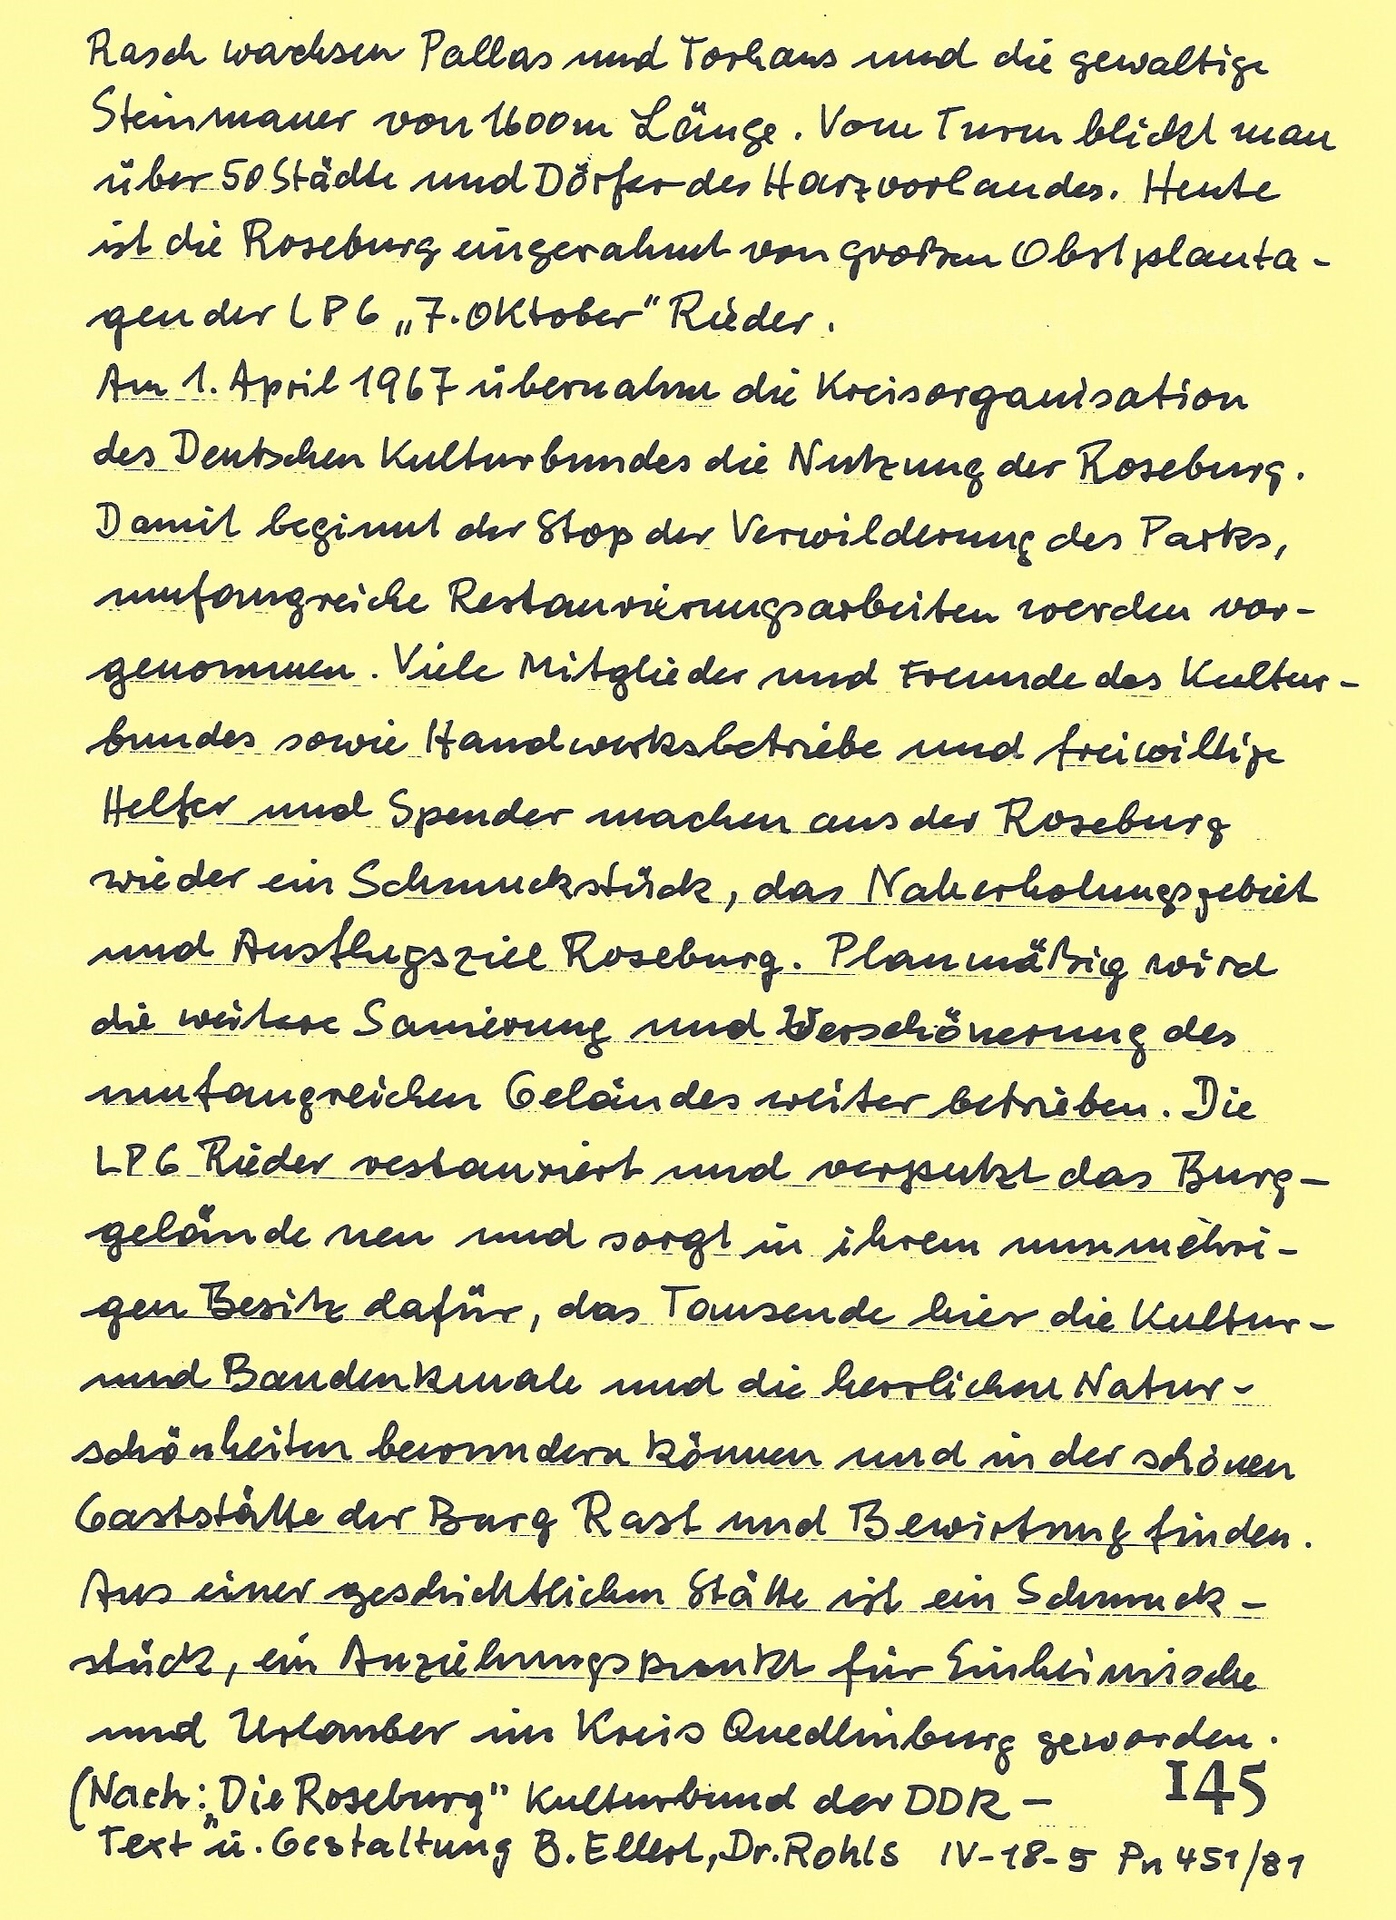 Rasch wachsen Pallas und Torhaus und die gewaltige
Steinmauer von 1600m Länge. Vom Turm blickt man
über 50 Städte und Dörfer des Harzvorlandes. Heute
ist die Roseburg eingerahmt von großen Obstplanta-
gen der LPG „7. Oktober" Rieder.
Am 1. April 1967 übernahm die Kreisorganisation
des Deutschen Kulturbundes die Nutzung der Roseburg.
Damit beginnt der Stop der Verwilderung des Parks,
umfangreiche Restaurierungsarbeiten werden vor-
genommen. Viele Mitglieder und Freunde des Kultur-
bundes sowie Handwerksbetriebe und freiwillige
Helfer und Spender machen aus der Roseburg
wieder ein Schmuckstück, das Naherholungsgebiet
und Ausflugsziel Roseburg. Planmäßig wird
die weitere Sanierung und Verschönerung des
umfangreichen Geländes weiter betrieben. Die
LPG Rieder restauriert und verputzt das Burg-
gelände neu und sorgt in ihrem nunmehri-
gen Besitz dafür, das Tausende hier die Kultur-
und Baudenkmale und die herrlichen Natur-
schönheiten bewundern können und in der schönen
Gaststätte der Burg Rast und Bewirtung finden.
Aus einer geschichtlichen Stätte ist ein Schmuck-
stück, ein Anziehungspunkt für Einheimische
und Urlauber im Kreis Quedlinburg geworden.
(Nach: „Die Roseburg" Kulturbund der DDR - 145
Text u. Gestaltung B. Ellert, Dr. Rohls IV-18-5 Pn 451/81